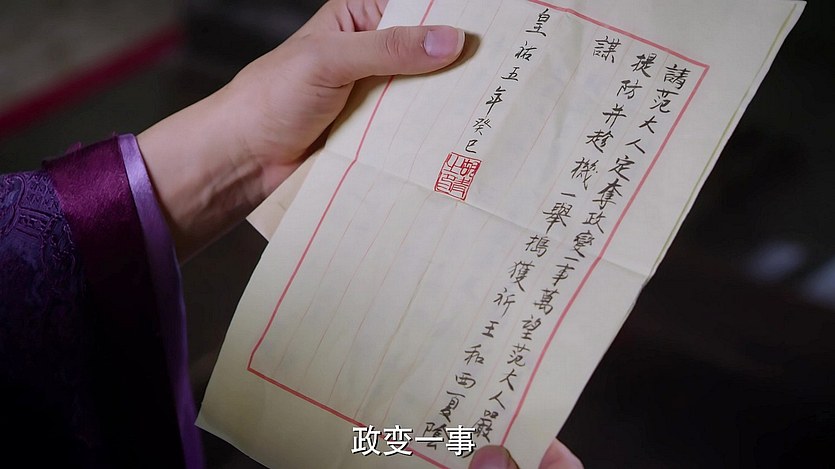 請范大人定奪政變一事萬望范大人嚴
提防并趁機一舉搗獲祈王和西夏陰
謀
皇祐五年癸巳
政变一事